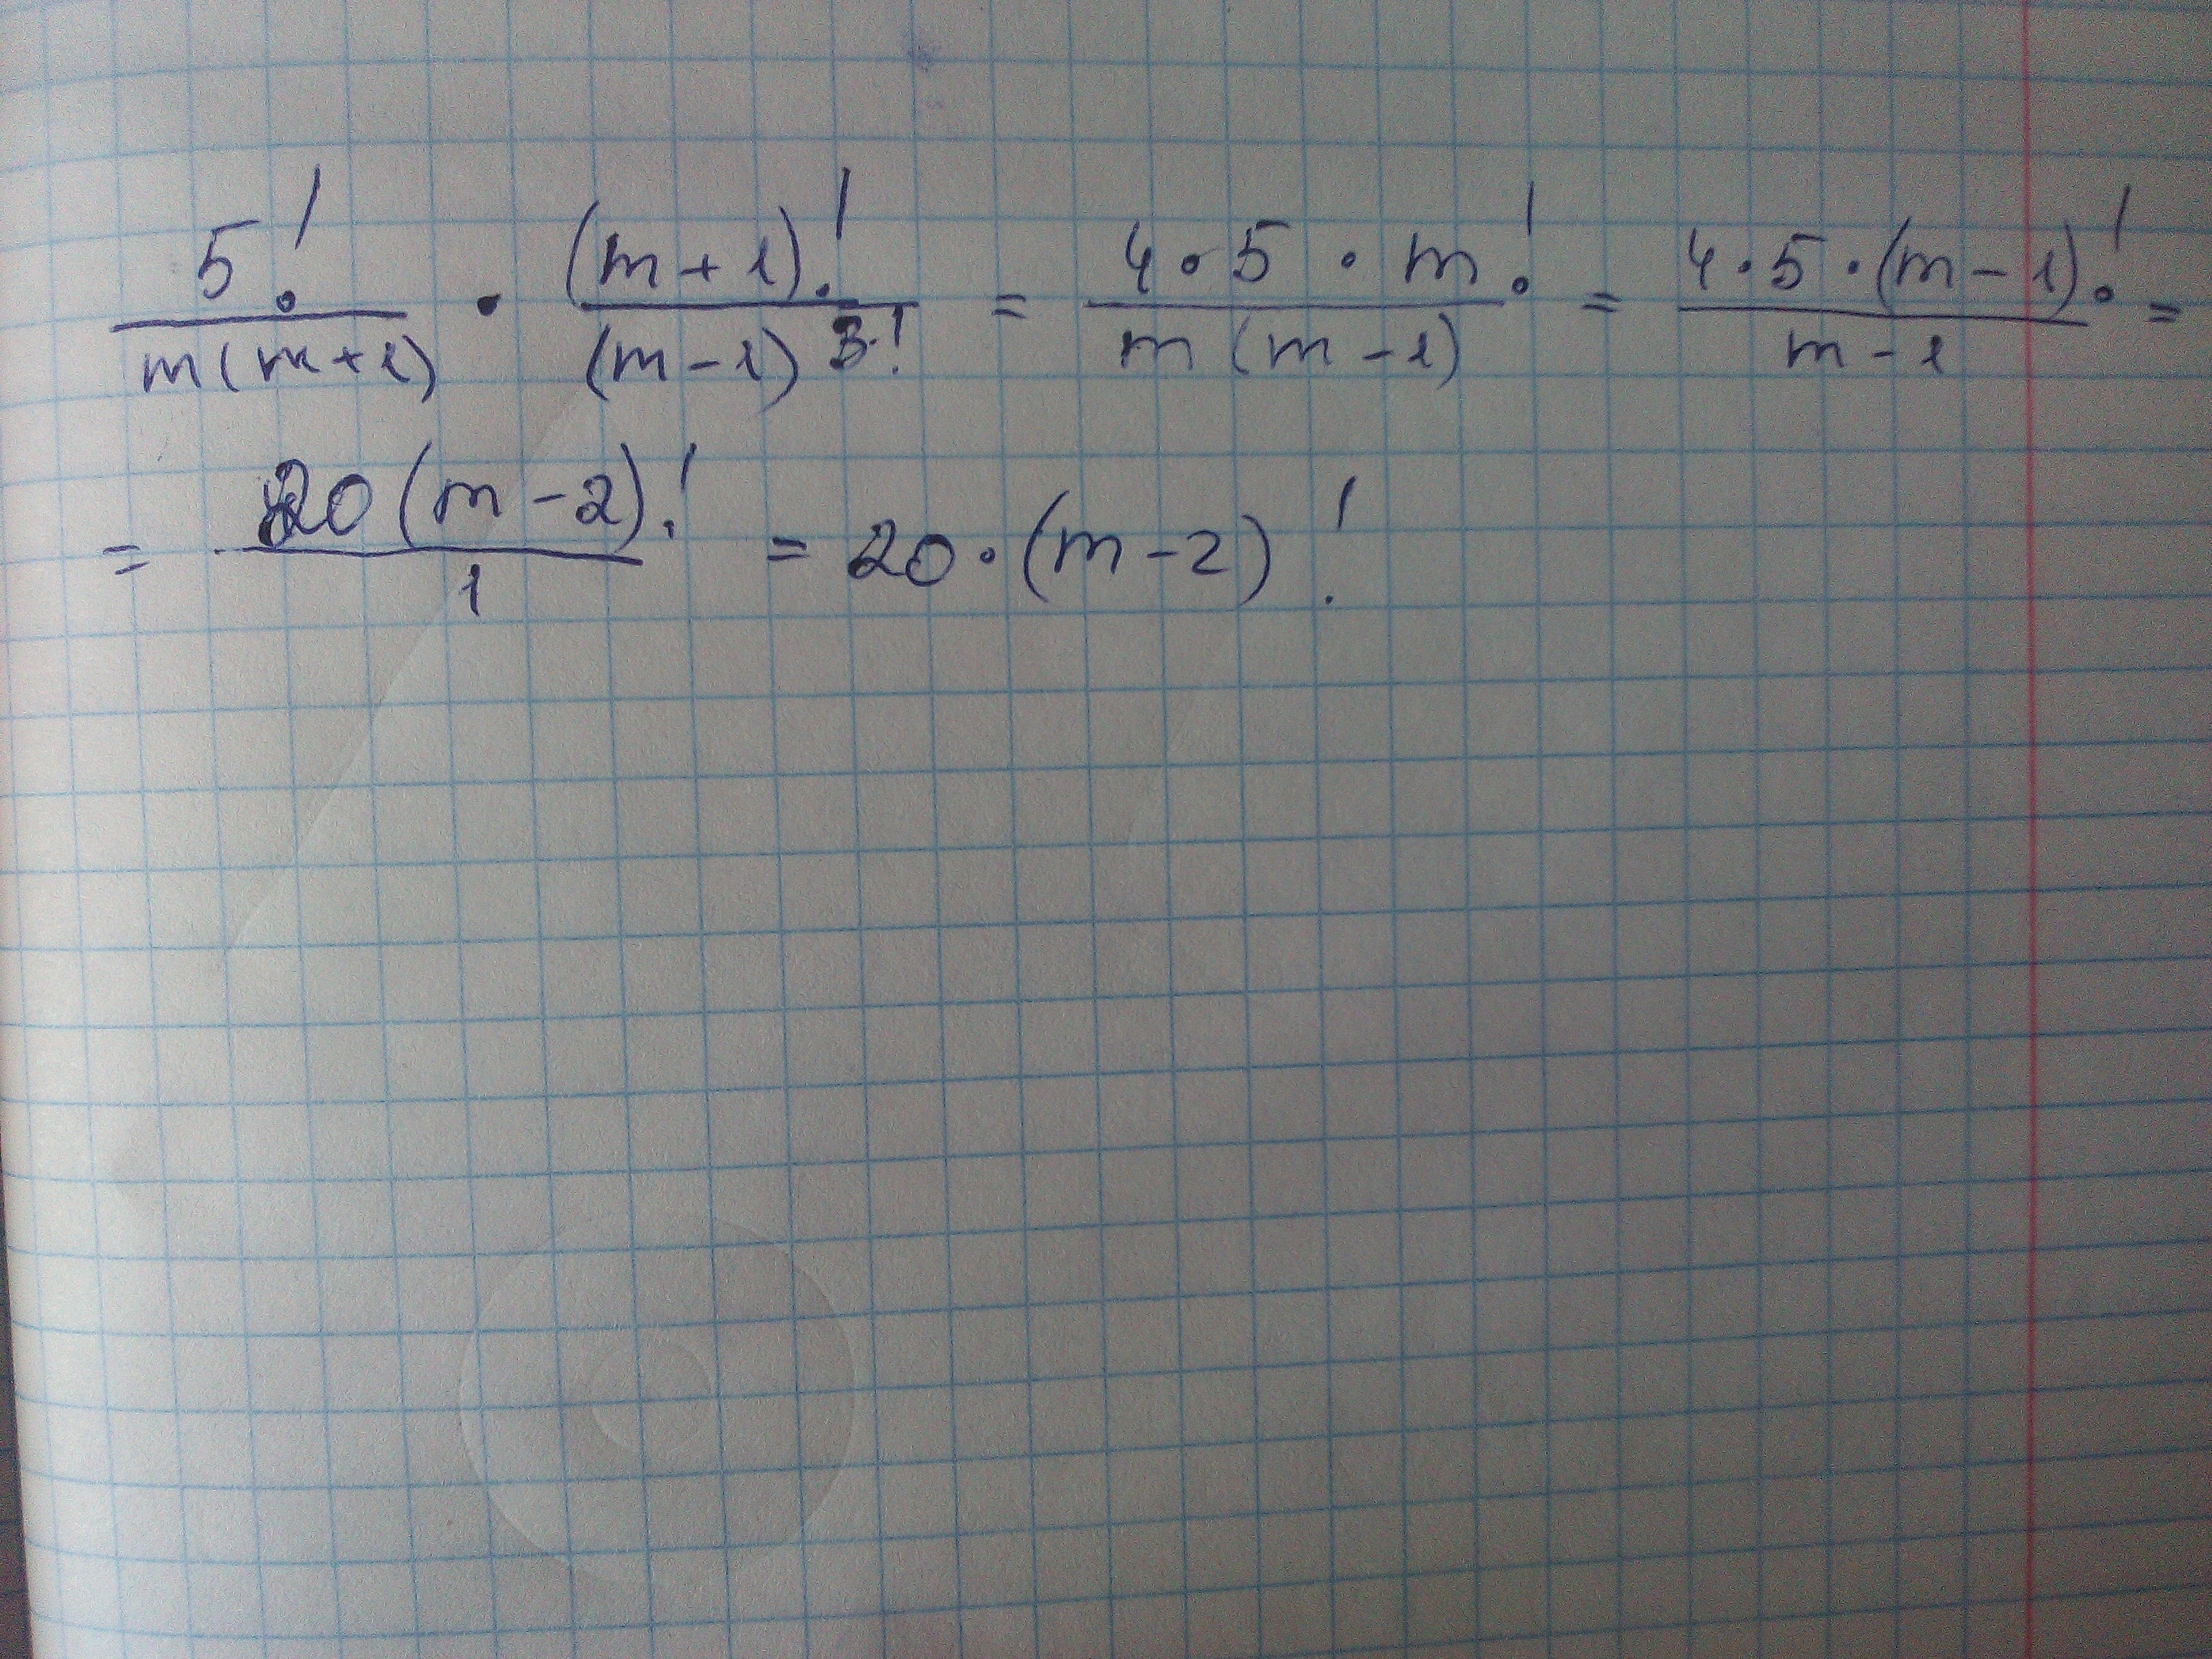 5! / m(m+1) · (m+1)! / (m-1)3! = 4·5·m! / m(m-1) = 4·5·(m-1)! / m-1 =
= 20(m-2)! / 1 = 20·(m-2)!